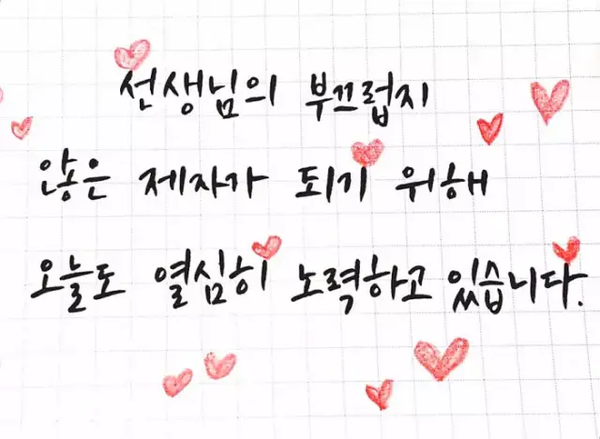 선생님의 부끄럽지
않은 제자가 되기 위해
오늘도 열심히 노력하고 있습니다.